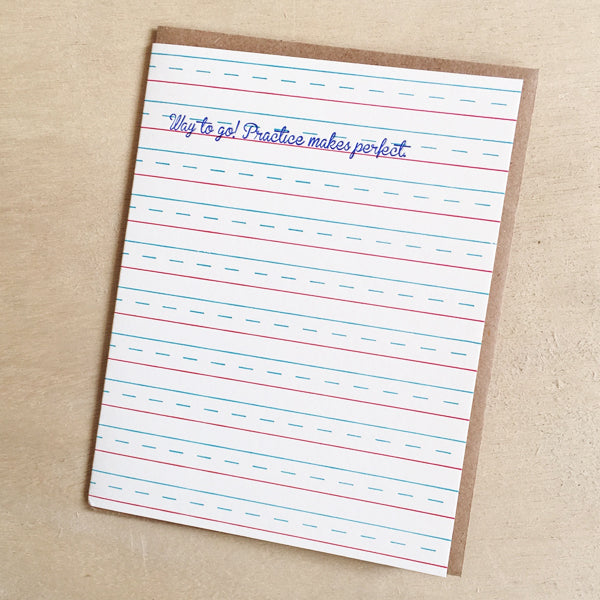 Way to go! Practice makes perfect.